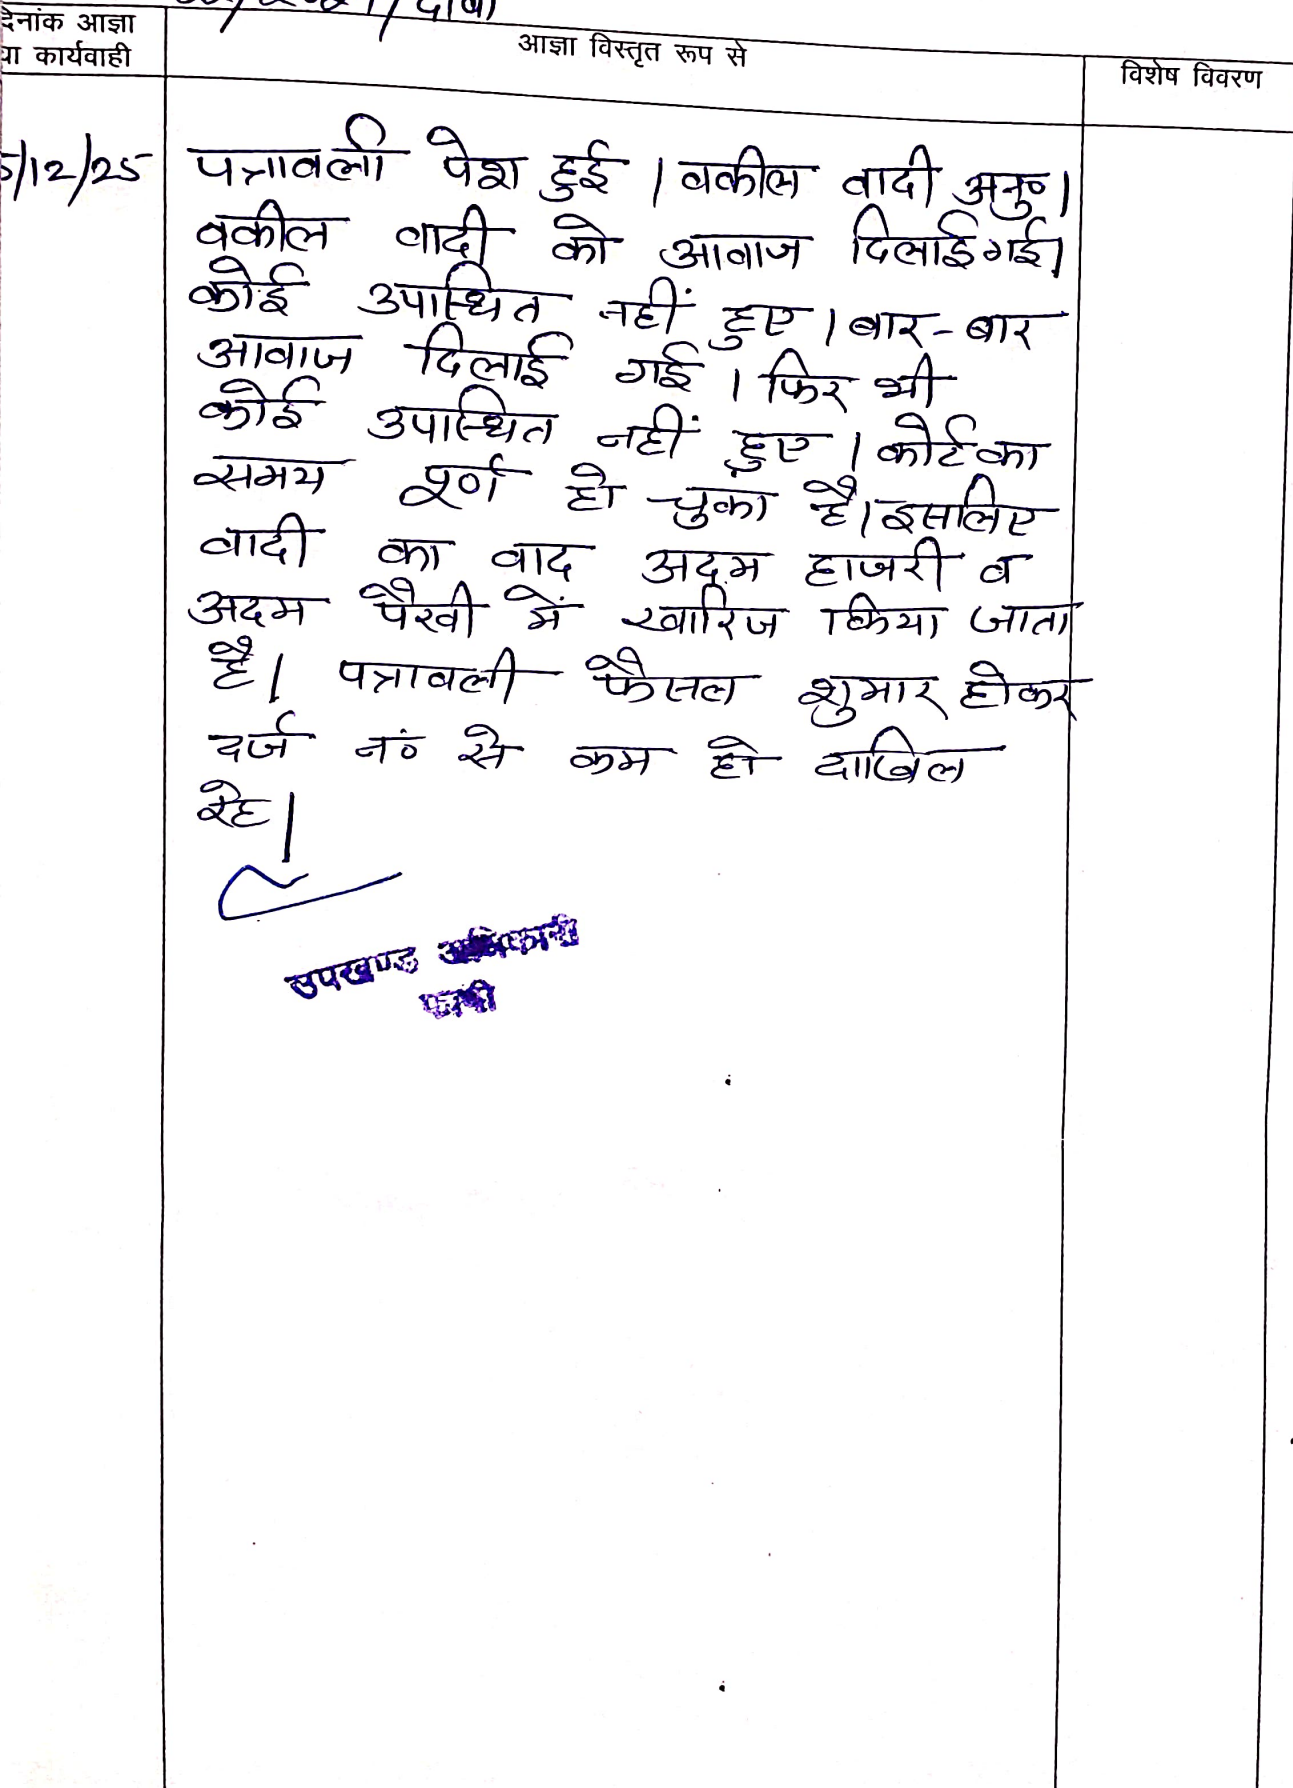 दिनांक आज्ञा
या कार्यवाही
आज्ञा विस्तृत रूप से
विशेष विवरण
5/12/25
पत्रावली पेश हुई । वकील वादी अनु० ।
वकील वादी को आवाज दिलाई गई ।
कोई उपास्थित नहीं हुए । बार-बार
आवाज दिलाई गई । फिर भी
कोई उपास्थित नहीं हुए । कोर्ट का
समय पूर्ण हो चुका है । इसलिए
वादी का वाद अदम हाजरी व
अदम पैरवी में खारिज किया जाता
है । पत्रावली फैसल शुमार होकर
दर्ज नं० से कम हो दाखिल
रहे ।
उपखण्ड अधिकारी